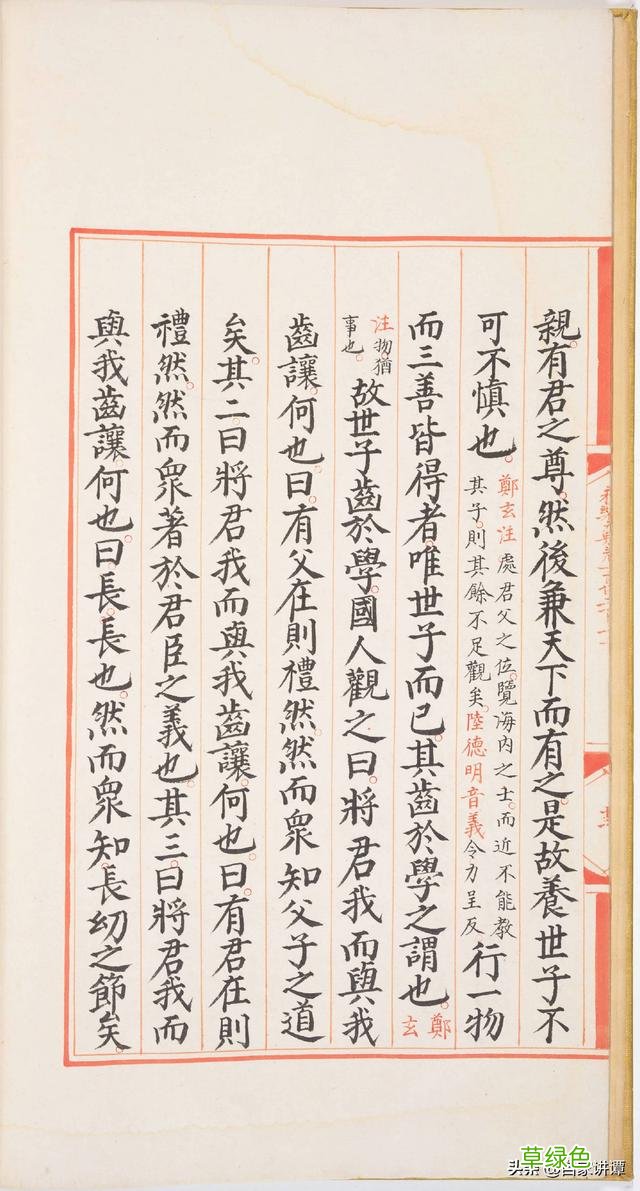 親。有君之尊。然後兼天下而有之。是故養世子不
可不慎也。鄭玄注處君父之位。覽海内之士。而近不能教
其子。則其餘不足觀矣。陸德明音義令力呈反行一物
而三善皆得者。唯世子而已。其齒於學之謂也。鄭玄
注物猶
事也。故世子齒於學。國人觀之曰。將君我而與我
齒讓。何也。曰。有父在則禮然。然而衆知父子之道
矣。其二。曰將君我而與我齒讓。何也。曰。有君在則
禮然。然而衆著於君臣之義也。其三。曰將君我而
與我齒讓。何也。曰。長長也。然而衆知長幼之節矣。
草绿色
头条 @百家讲谭